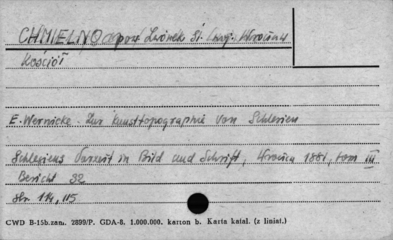 CHMIELNO pow. Lwówek Śl. woj. Wrocław
Kościół
E. Wernicke. Zur Kunsttopographie von Schlesien
Schlesiens Vorzeit in Bild und Schrift, Wrocław 1881, tom III
Bericht 32
str. 114, 115
CWD B-15b.zam. 2899/P. GDA-8. 1.000.000. karton b. Karta katal. (z liniat.)